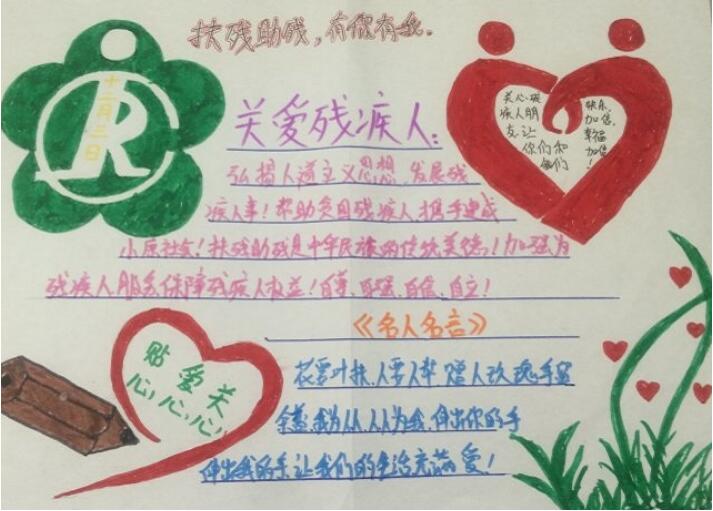 扶残助残,有你有我.
十二月三日
R
关爱残疾人:
关心残
疾人朋
友,让
你们和
我们
快乐
加倍,
幸福
加倍!
弘扬人道主义思想,发展残
疾人事!帮助贫困残疾人携手建成
小康社会!扶残助残是中华民族的传统美德!加强为
残疾人服务保障残疾人权益!自尊、自强、自信、自立!
《名人名言》
贴 爱 关
心 心 心
花要叶扶,人要人帮,赠人玫瑰手留
余香,我为人人,人人为我,伸出你的手
伸出我的手,让我们的生活充满爱!